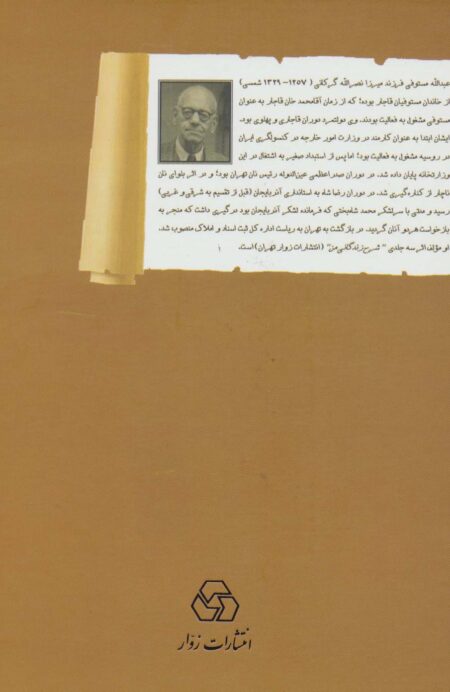 عبدالله مستوفی فرزند میرزا نصرالله گرکانی ( ۱۲۵۷– ۱۳۲۹ شمسی)
از خاندان مستوفیان قاجار بود؛ که از زمان آقامحمد خان قاجار به عنوان
مستوفی مشغول به فعالیت بودند. وی دولتمرد دوران قاجاری و پهلوی بود.
ایشان ابتدا به عنوان کارمند در وزارت امور خارجه در کنسولگری ایران
در روسیه مشغول به فعالیت بود؛ اما پس از استبداد صغیر به اشتغال در این
وزارتخانه پایان داده شد. در دوران صدراعظمی عین‌الدوله رئیس نان تهران بود؛ و در اثر بلوای نان
ناچار از کناره‌گیری شد. در دوران رضا شاه به استانداری آذربایجان (قبل از تقسیم به شرقی و غربی)
رسید و مدتی با سرلشکر محمد شاه‌بختی که فرمانده لشکر آذربایجان بود درگیری داشت که منجر به
بازخواست هردو آنان گردید. در بازگشت به تهران به ریاست اداره کل ثبت اسناد و املاک منصوب شد.
او مؤلف اثر سه جلدی " شرح زندگانی من" (انتشارات زوار تهران) است.
انتشارات زوّار